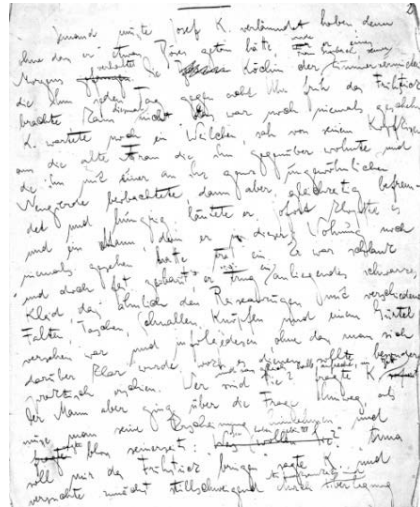 Jemand musste Josef K. verläumdet haben, denn
ohne dass er etwas Böses getan hätte, wurde er eines
Morgens verhaftet. Die Köchin der Zimmervermieterin
die ihm jeden Tag gegen acht Uhr früh das Frühstück
brachte kam diesmal nicht. Das war noch niemals geschehn.
K. wartete noch ein Weilchen, sah von seinem Kopfkissen
aus die alte Frau die ihm gegenüber wohnte und
die ihn mit einer an ihr ganz ungewöhnlichen
Neugierde beobachtete, dann aber, gleichzeitig befrem-
det und hungrig, läutete er. Sofort klopfte es
und ein Mann, den er in dieser Wohnung noch
niemals gesehen hatte trat ein. Er war schlank
und doch fest gebaut, er trug ein anliegendes schwarzes
Kleid, das ähnlich den Reiseanzügen mit verschiedenen
Falten, Taschen, Schnallen, Knöpfen und einem Gürtel
versehen war und infolgedessen, ohne dass man sich
darüber klar wurde, wozu es dienen sollte, besonders
praktisch erschien. "Wer sind Sie?" fragte K.
und sass gleich halb aufrecht
Der Mann aber ging über die Frage hinweg, als
müsse man seine Erscheinung hinnehmen und
bloss seinerseits: "Sie haben geläutet?" "Anna
soll mir das Frühstück bringen", sagte K. und
versuchte zunächst stillschweigend durch